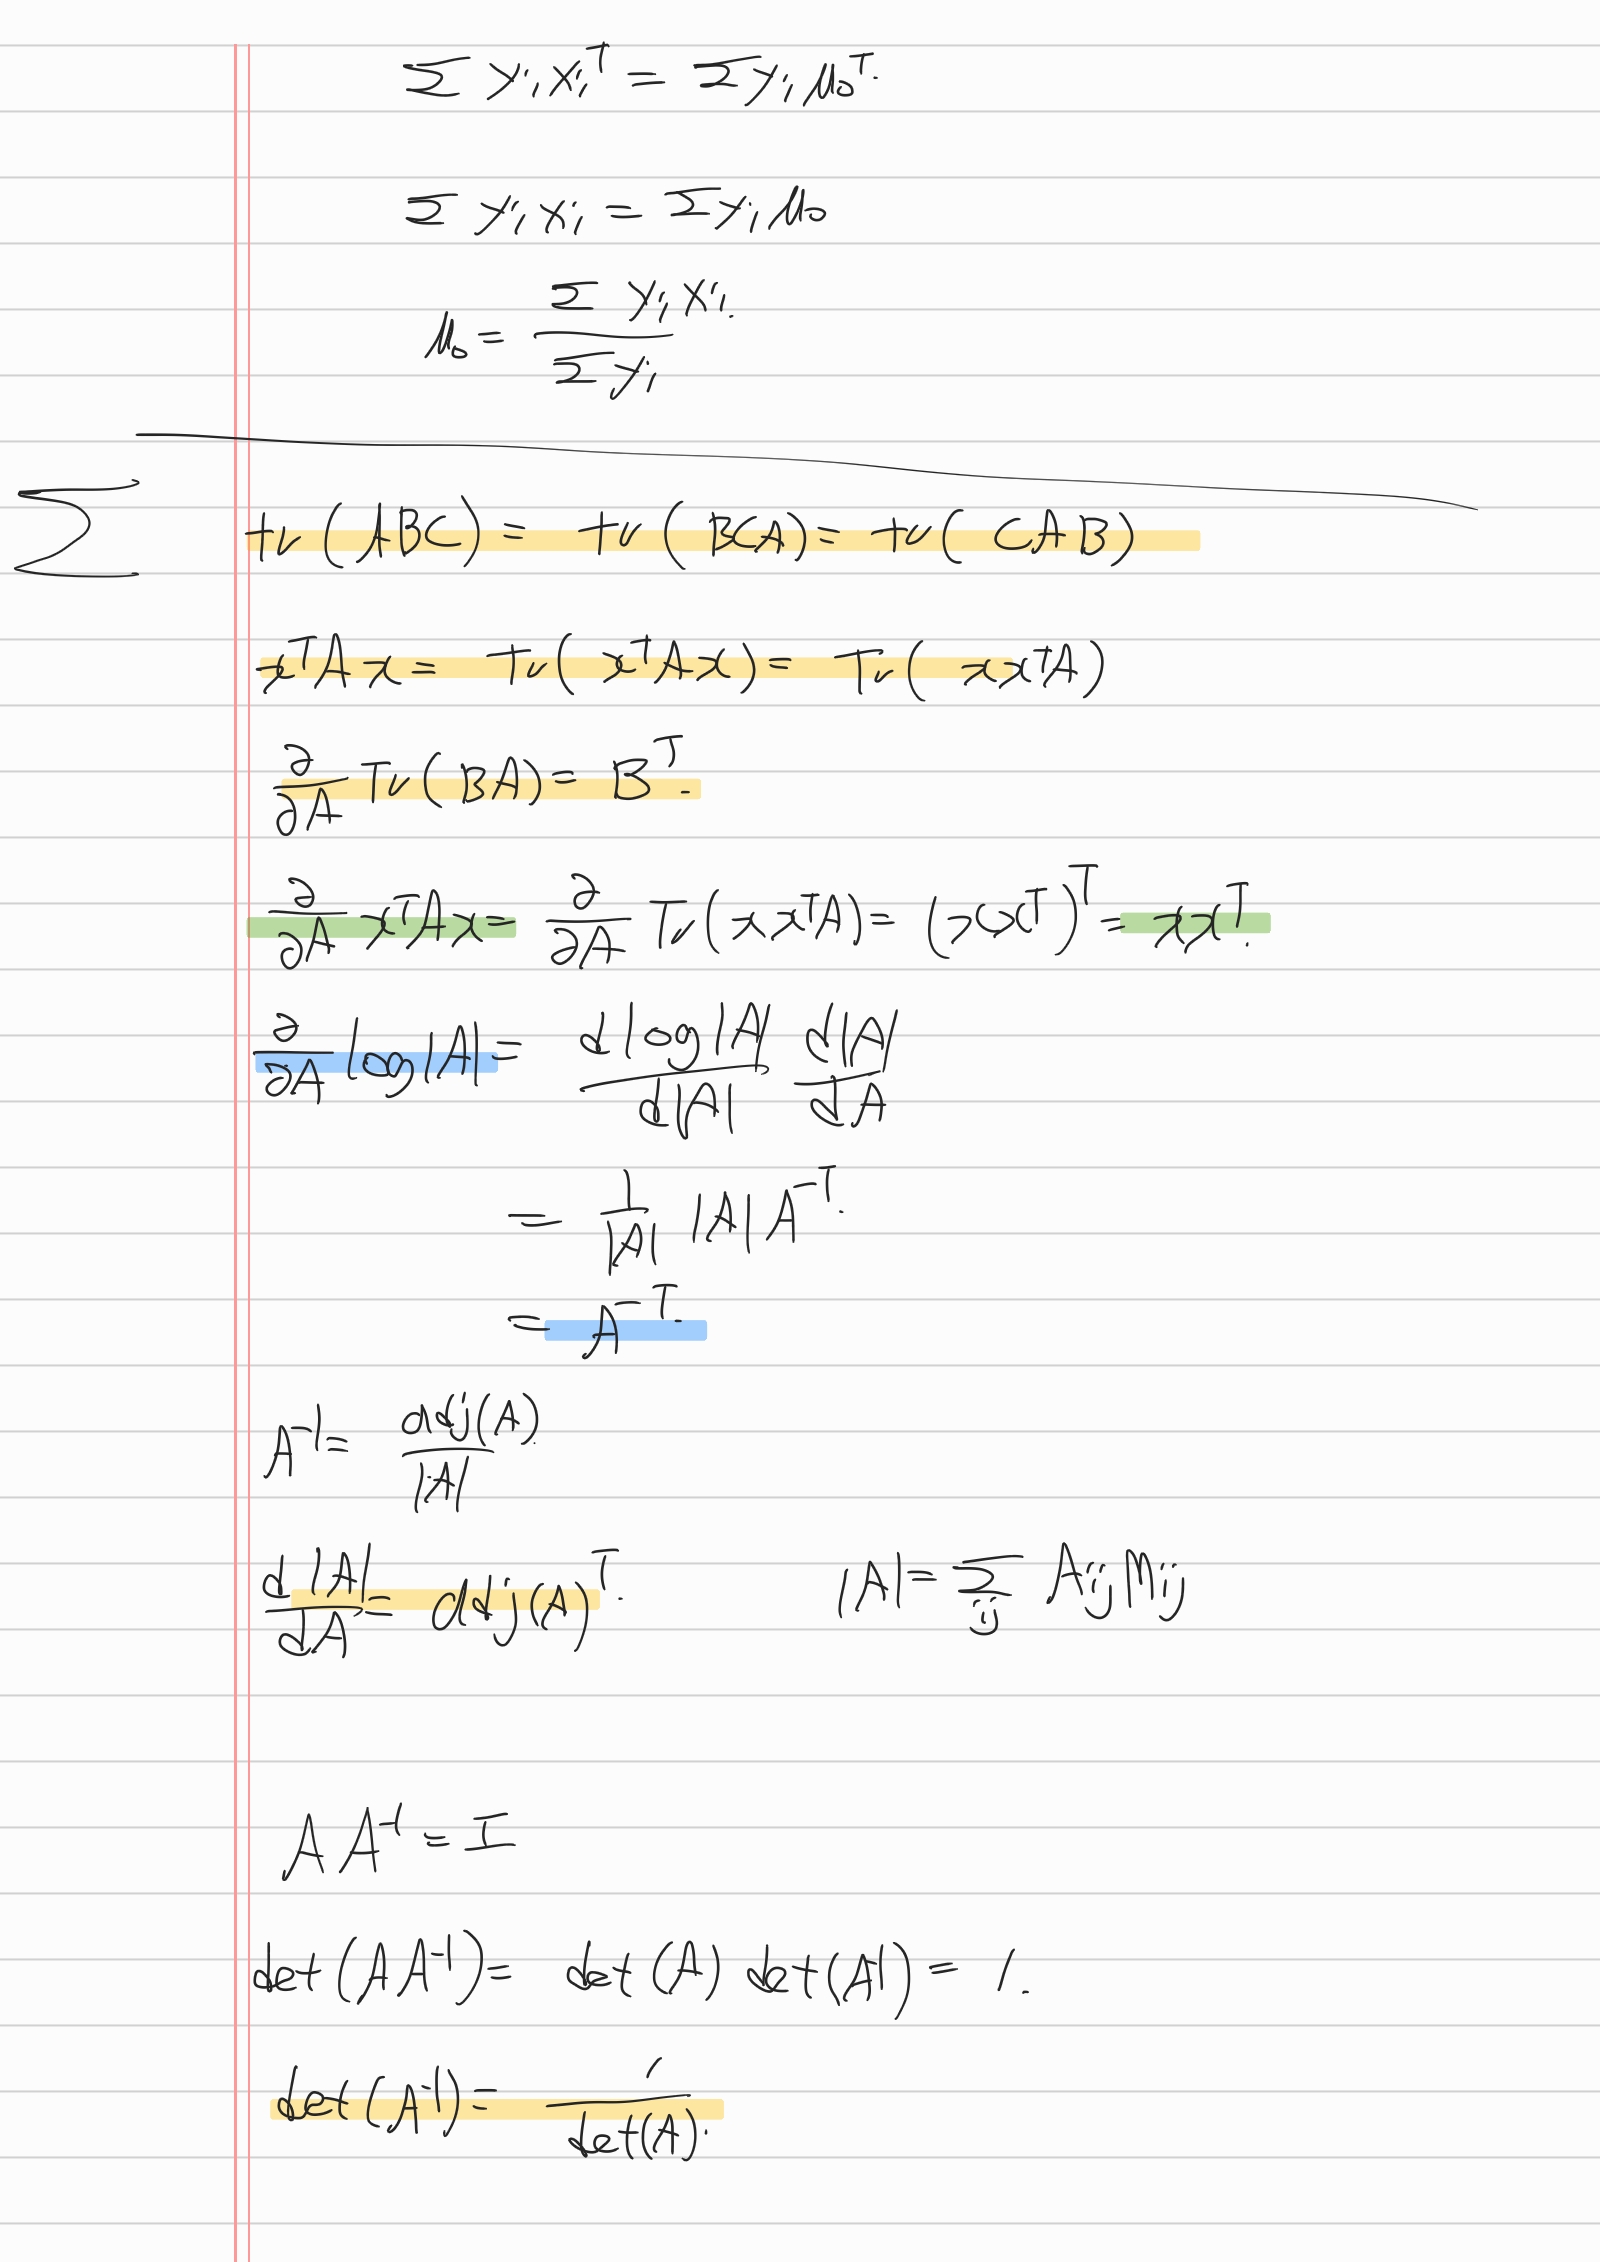 Σ yᵢ xᵢᵀ = Σ yᵢ μ₀ᵀ.
Σ yᵢ xᵢ = Σ yᵢ μ₀
μ₀ = (Σ yᵢ xᵢ.) / (Σ yᵢ)
Σ
tr(ABC) = tr(BCA) = tr(CAB)
xᵀAx = Tr(xᵀAx) = Tr(xxᵀA)
∂/∂A Tr(BA) = Bᵀ.
∂/∂A xᵀAx = ∂/∂A Tr(xxᵀA) = (xxᵀ)ᵀ = xxᵀ.
∂/∂A log|A| = (d log|A|)/(d|A|) (d|A|)/(dA)
= 1/|A| |A| A⁻ᵀ.
= A⁻ᵀ.
A⁻¹ = adj(A)/|A|
d|A|/dA = adj(A)ᵀ. |A| = Σᵢⱼ Aᵢⱼ Mᵢⱼ
A A⁻¹ = I
det(A A⁻¹) = det(A) det(A⁻¹) = 1.
det(A⁻¹) = 1/det(A).